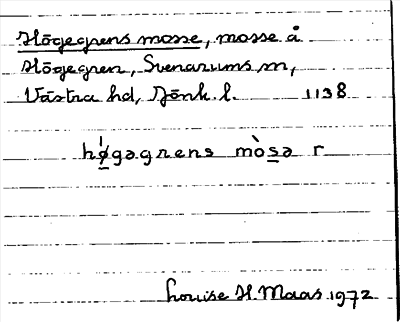 Högegrens mosse, mosse å
Högegren, Svenarums sn,
Västra hd, Jönk. l. 1138
hø̀gəgrens mòsə r
Louise H. Maas 1972